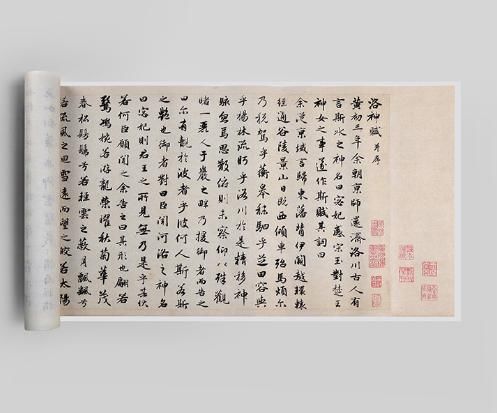 洛神賦 并序
黃初三年余朝京師還濟洛川古人有
言斯水之神名曰宓妃感宋玉對楚王
神女之事遂作斯賦其詞曰
余從京域言歸東藩背伊闕越轘轅
經通谷陵景山日既西傾車殆馬煩尔
乃稅駕乎蘅皋秣駟乎芝田容與
乎楊林流眄乎洛川於是精移神
駭忽焉思散俯則未察仰以殊觀
睹一麗人于巖之畔乃援御者而告之
曰尔有覿於彼者乎彼何人斯若斯
之艷也御者對曰臣聞河洛之神名
曰宓妃則君王之所見無乃是乎其狀
若何臣願聞之余告之曰其形也翩若
驚鴻婉若游龍榮曜秋菊華茂
春松髣髴兮若輕雲之蔽月飄颻兮
若流風之迴雪遠而望之皎若太陽